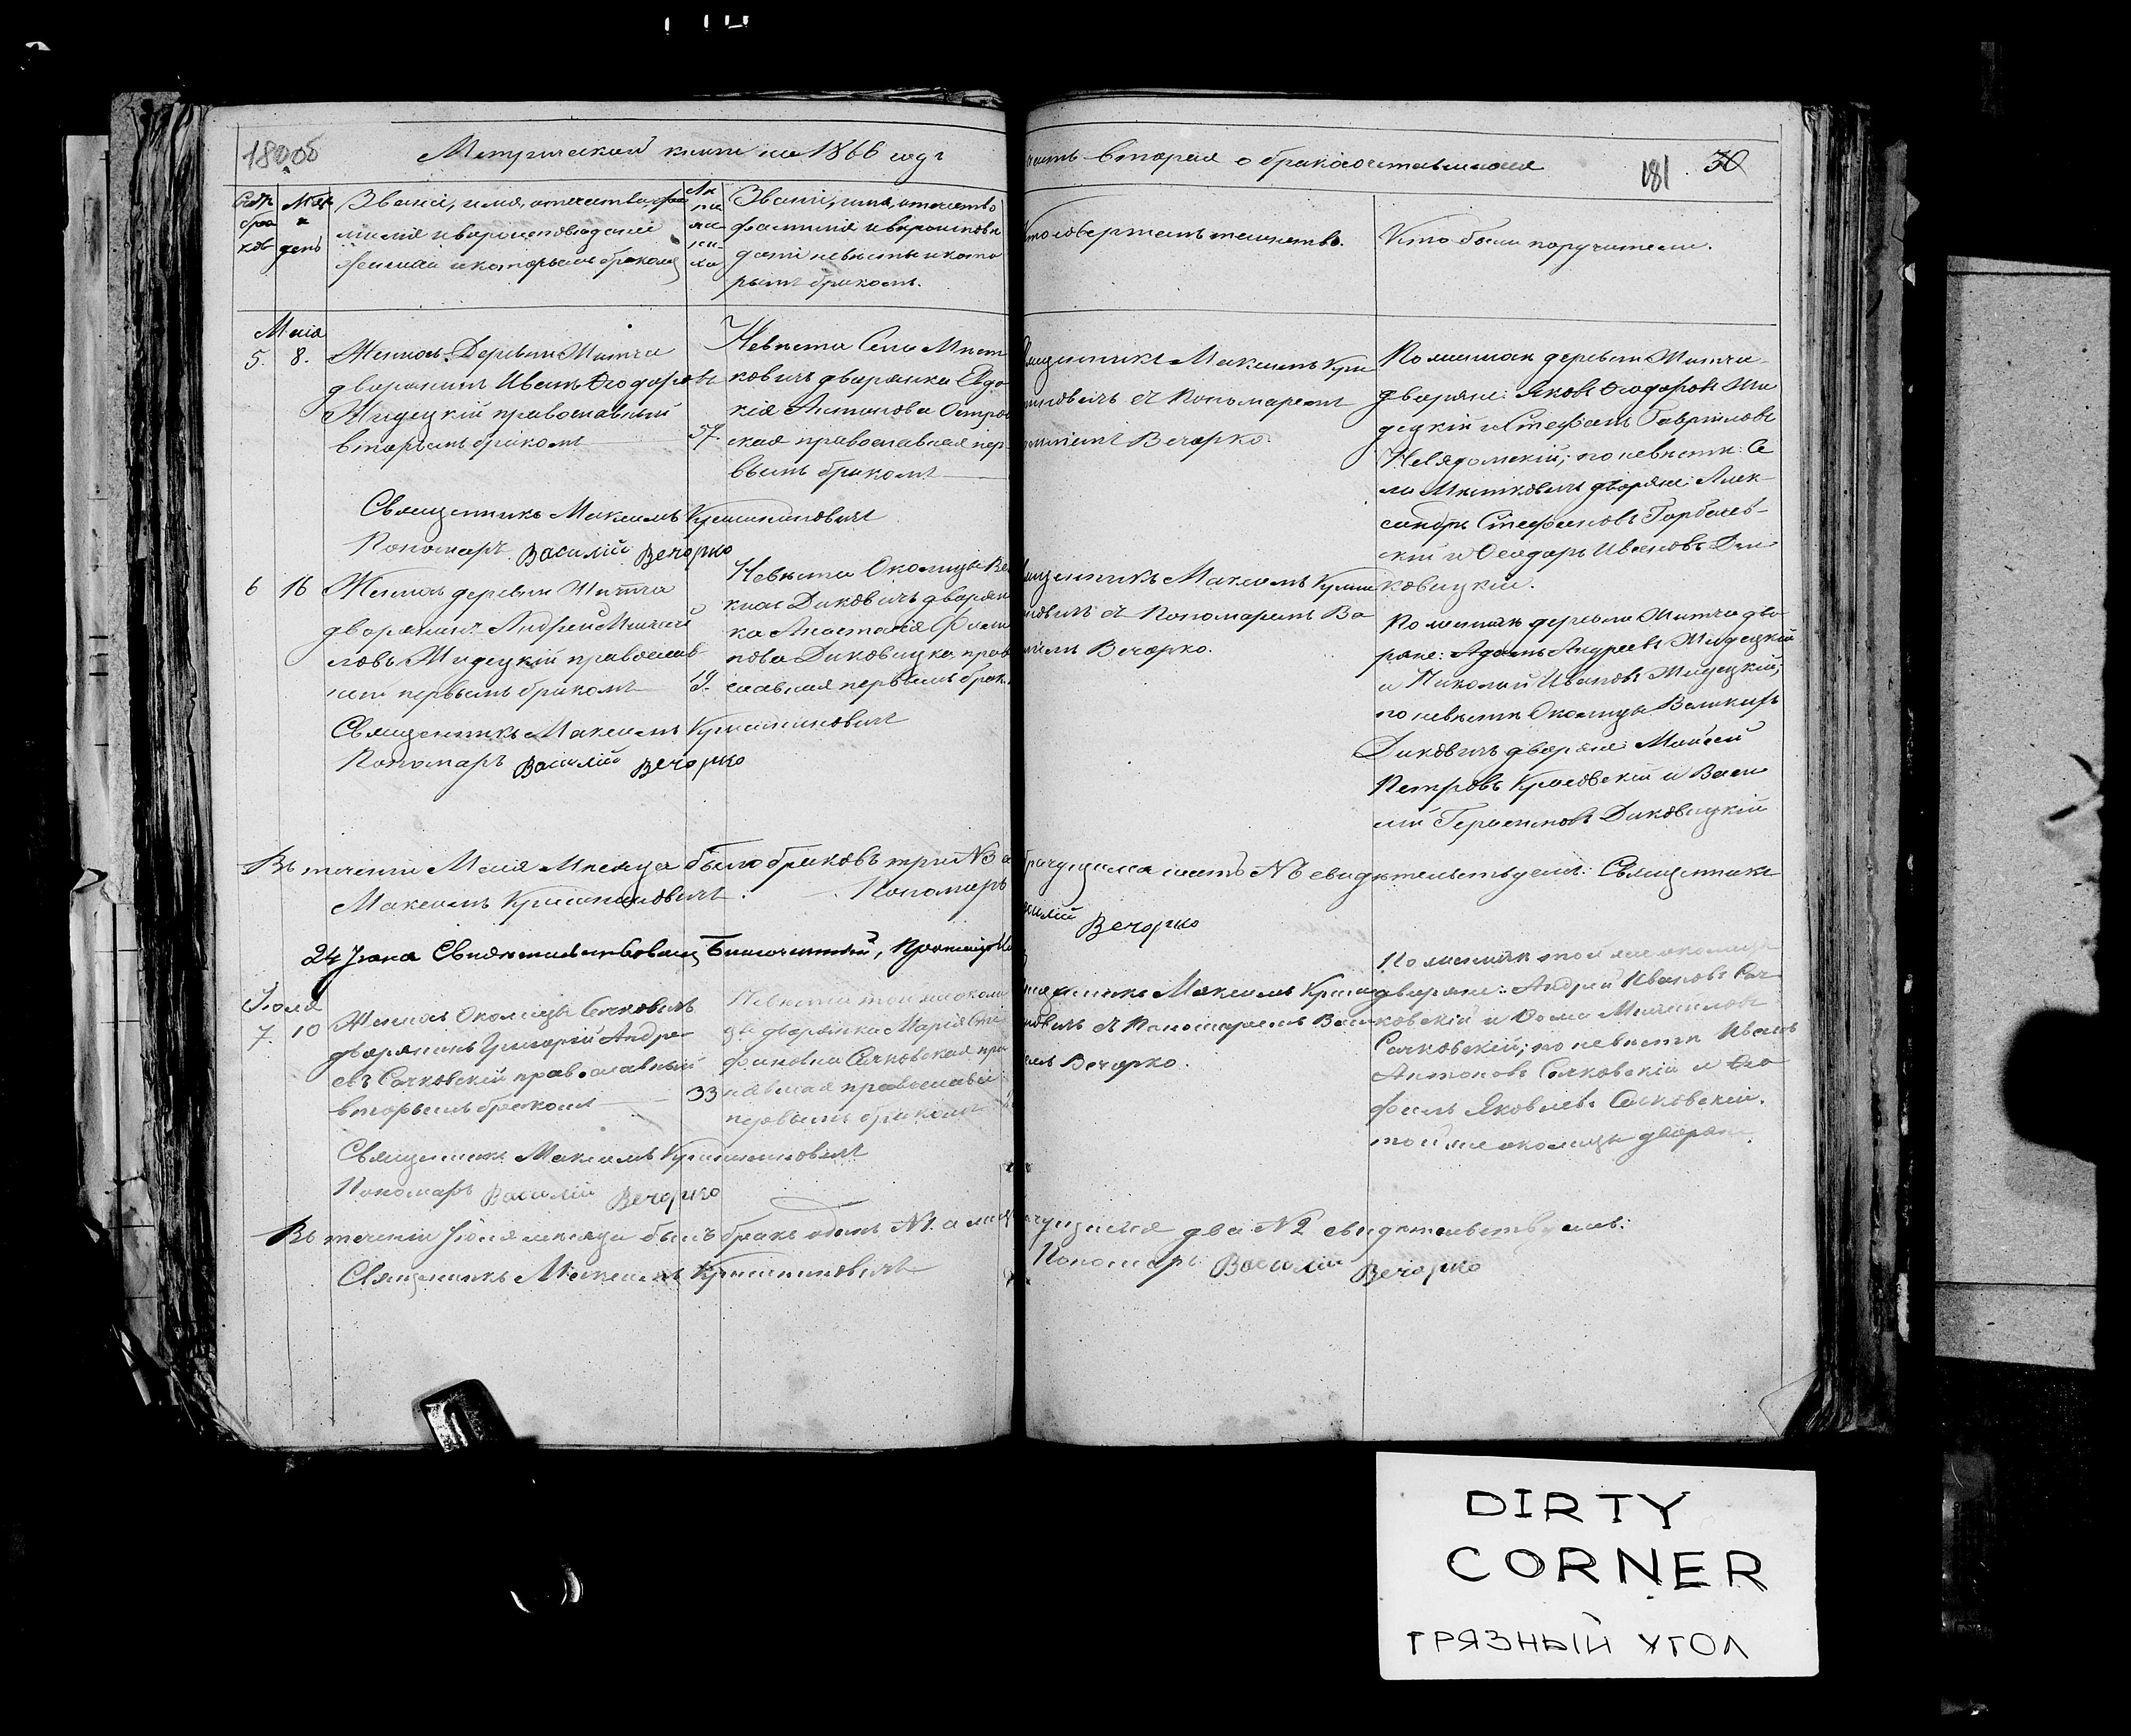 180об
Метрической книги на 1866 годъ
часть вторая о бракосочетавшихся
181 . 30
Счетъ браковъ
Мѣс. и день
Званіе, имя, отечество, фамилія и вѣроисповѣданіе жениха и которымъ бракомъ
Лѣта жениха
Званіе, имя, отечество
фамилія и вѣроисповѣ
даніе невѣсты и кото
рымъ бракомъ.
Кто совершалъ таинство.
Кто были поручители.
Маія
5. 8.
Женихъ Деревни Житча
дворянинъ Иванъ Ѳеодоровъ
Жидецкій православный
вторымъ бракомъ
57.
Невѣста Села Мнет
ковичъ дворянка Евдо
кія Антонова Остров
ская православная пер
вымъ бракомъ
Священникъ Максимъ Кри
Пономаремъ
Вечорко.
По женихѣ деревни Житча
дворяне: Яковъ Ѳеодоровъ Жи
децкій и Стефанъ Гавриловъ
Невядомскій; по невѣстѣ: Се
ла Мнетковичъ дворяне: Алек
сандръ Стефановъ Горбачев
скій и Ѳеодоръ Ивановъ Ди
ковицкій.
Священникъ Максимъ
Пономарь Василій Вечорко
6 16
Женихъ деревни Житча
дворянинъ Андрей Михай
ловъ Жидецкій православ
ный первымъ бракомъ
19.
Невѣста Околицы Ве
кихъ Диковичъ дворян
ка Анастасія Фили
пова Диковицка, прав
славная первымъ брак
Священникъ Максимъ
Пономаремъ Ва
Вечорко.
По женихѣ деревни Житча дво
ряне: Адамъ Андреевъ Жидецкій
и Николай Ивановъ Жидецкій;
по невѣстѣ Околицы Великихъ
Диковичъ дворяне Моисей
Петровъ и Васи
лій Герасимовъ Диковицкій
Священникъ Максимъ
Пономарь Василій Вечорко
Въ теченіи Маія Мѣсяца было браковъ три №3 а
брачущихся шесть №6 свидѣтельствуемъ: Священникъ
Максимъ
Пономарь
Василій Вечорко
24 Іюня Свидѣтельствовалъ Благочинный, Протоіерей
Іюля
7. 10
Женихъ Околицы Сачковичъ
дворянинъ Григорій Андре
евъ Сачковскій православный
вторымъ бракомъ
33
Невѣста той же околи
цы дворянка Марія Сте
фановна Сачковская пра
православ
первымъ бракомъ
Священникъ Максимъ
Пономаремъ Васи
Вечорко.
По женихѣ той же околицы
дворяне: Андрей Ивановъ Сач
ковскій и Ѳома Михайловъ
Сачковскій; по невѣстѣ Иванъ
Антоновъ Сачковскій и Ѳео
филъ Яковлевъ Сачковскій.
той же околицы дворяне.
Священникъ Максимъ
Пономарь Василій Вечорко
Въ теченіи Іюля мѣсяца былъ бракъ одинъ №1. а
брачущихся два №2 свидѣтельствуемъ:
Священникъ Максимъ
Пономарь Василій Вечорко
DIRTY
CORNER
ГРЯЗНЫЙ УГОЛ